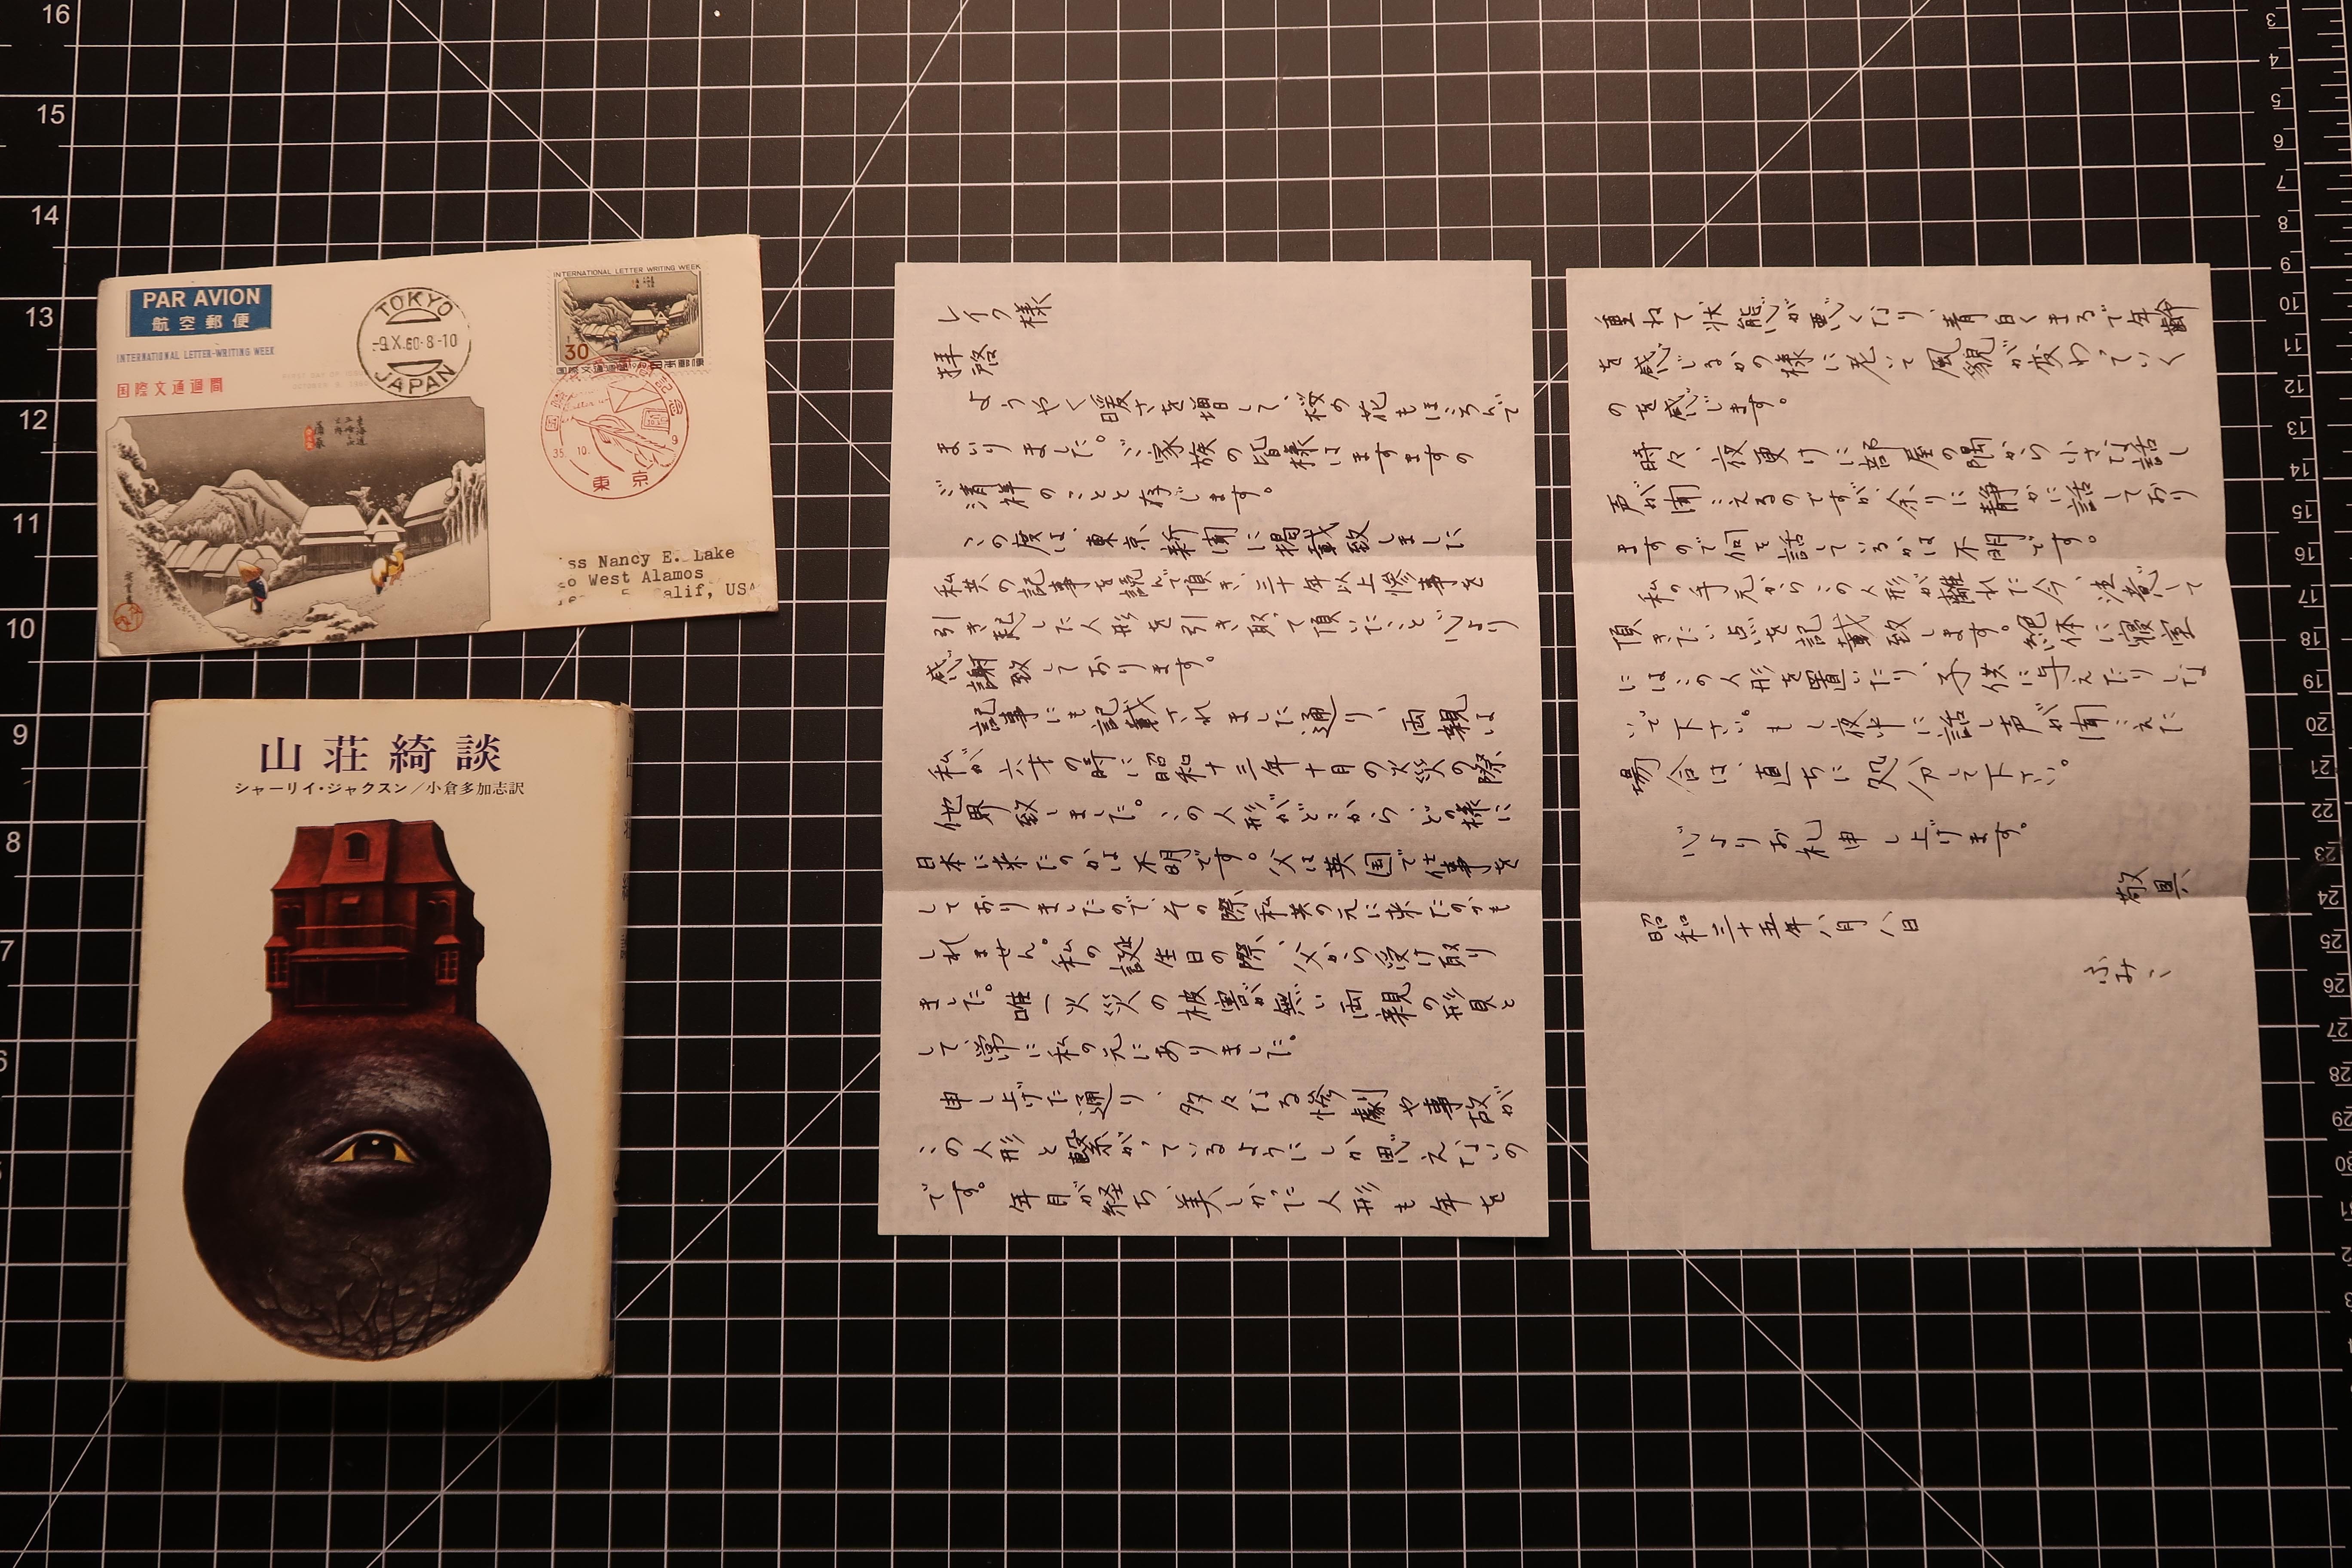 PAR AVION
航空郵便
INTERNATIONAL LETTER-WRITING WEEK
国際文通週間
TOKYO
-9.X.60.8-10
JAPAN
INTERNATIONAL LETTER WRITING WEEK
30
国際文通週間1960日本郵便
35. 10. 9
東京
ss Nancy E. Lake
o West Alamos
Calif, USA
山荘綺談
シャーリイ・ジャクスン/小倉多加志訳
レイク様
拝啓
ようやく暖さを増して、桜の花もほころんで
まいりました。ご家族の皆様はますますの
ご清祥のことと存じます。
この度は、東京新聞に掲載致しました
私共の記事を読んで頂き、三十年以上惨事を
引き起した人形を引き取って頂いたこと心より
感謝致しております。
記事にも記載されました通り、両親は
私が六才の時に昭和十三年十月の火災の際、
他界致しました。この人形がどこから、どの様に
日本に来たのかは不明です。父は英国で仕事を
しておりましたので、その際、私共の元に来たのかも
しれません。私の誕生日の際、父から受け取り
ました。唯一火災の被害が無い両親の形見と
して、常に私の元にありました。
申し上げた通り、多々なる惨劇や事故が
この人形と繋がっているようにしか思えないの
です。年月が経ち、美しかった人形も年を
重ねて状態が悪くなり、青白くまるで年齢
を感じるかの様に老いて風貌が変わっていく
のを感じます。
時々、夜更けに部屋の隅から小さな話し
声が聞こえるのですが、余りに静かに話しており
ますので何を話しているかは不明です。
私の手元からこの人形が離れた今、注意して
頂きたい点を記載致します。絶体に寝室
にはこの人形を置いたり、子供に与えたりしな
いで下さい。もし夜中に話し声が聞こえた
場合は、直ちに処分して下さい。
心よりお礼申し上げます。
敬具
昭和三十五年八月八日
ふみこ
16
15
14
13
12
11
10
9
8
7
6
3
4
5
6
7
8
9
10
11
12
13
14
15
16
17
18
19
20
21
22
23
24
25
26
27
28
29
30